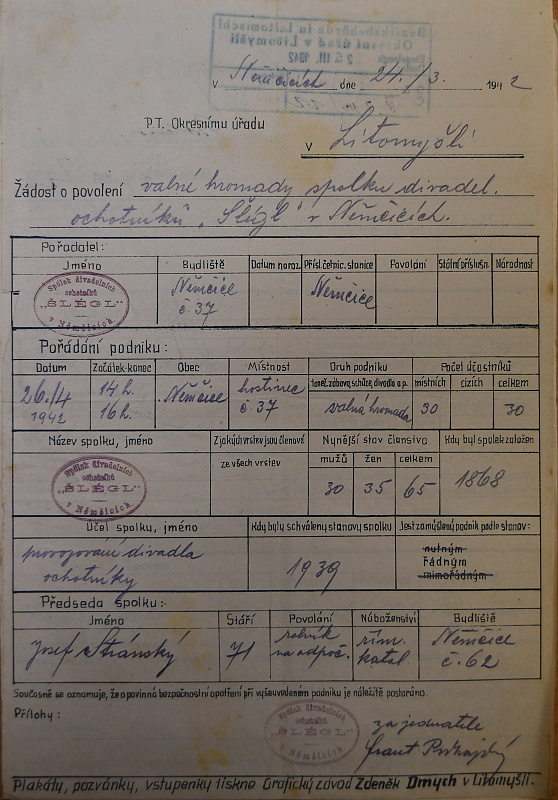 Bezirksbehörde in Leitomischl
Okresní úřad v Litomyšli
25. III. 1942
v Němčicích dne 24./3. 1942
P.T. Okresnímu úřadu
v Litomyšli
Žádost o povolení valné hromady spolku divadel.
ochotníků „Šlégl" v Němčicích.
Pořadatel:
Jméno Budliště Datum naroz. Přísl.četnic.stanice Povolání Státní příslušn. Národnost
Spolek divadelních ochotníků „ŠLÉGL" v Němčicích. Němčice č 37 Němčice
Pořádání podniku:
Datum Začátek-konec Obec Místnost Druh podniku Počet účastníků
taneč.zábava, schůze, divadlo a p. místních cizích celkem
26./4 1942 14 h. 16 h. Němčice hostinec č. 37 valná hromada 30 30
Název spolku, jméno Z jakých vrstev jsou členové Nynější stav členstva Kdy byl spolek založen
mužů žen celkem
Spolek divadelních ochotníků „ŠLÉGL" v Němčicích. ze všech vrstev 30 35 65 1868
Účel spolku, jméno Kdy byly schváleny stanovy spolku Jest zamýšlený podnik podle stanov:
provozování divadla ochotníky 1939 nutným řádným mimořádným
Předseda spolku:
Jméno Stáří Povolání Náboženství Budliště
Josef Stránský 71 rolník na odpoč. řím. katol Němčice č. 62
Současně se oznamuje, že o povinná bezpečnostní opatření při výšeuvedeném podniku je náležitě postaráno.
Přílohy:
Spolek divadelních ochotníků „ŠLÉGL" v Němčicích.
za jednatele
Frant
Plakáty, pozvánky, vstupenky tiskne Grafický závod Zdeněk Dmych v Litomyšli.